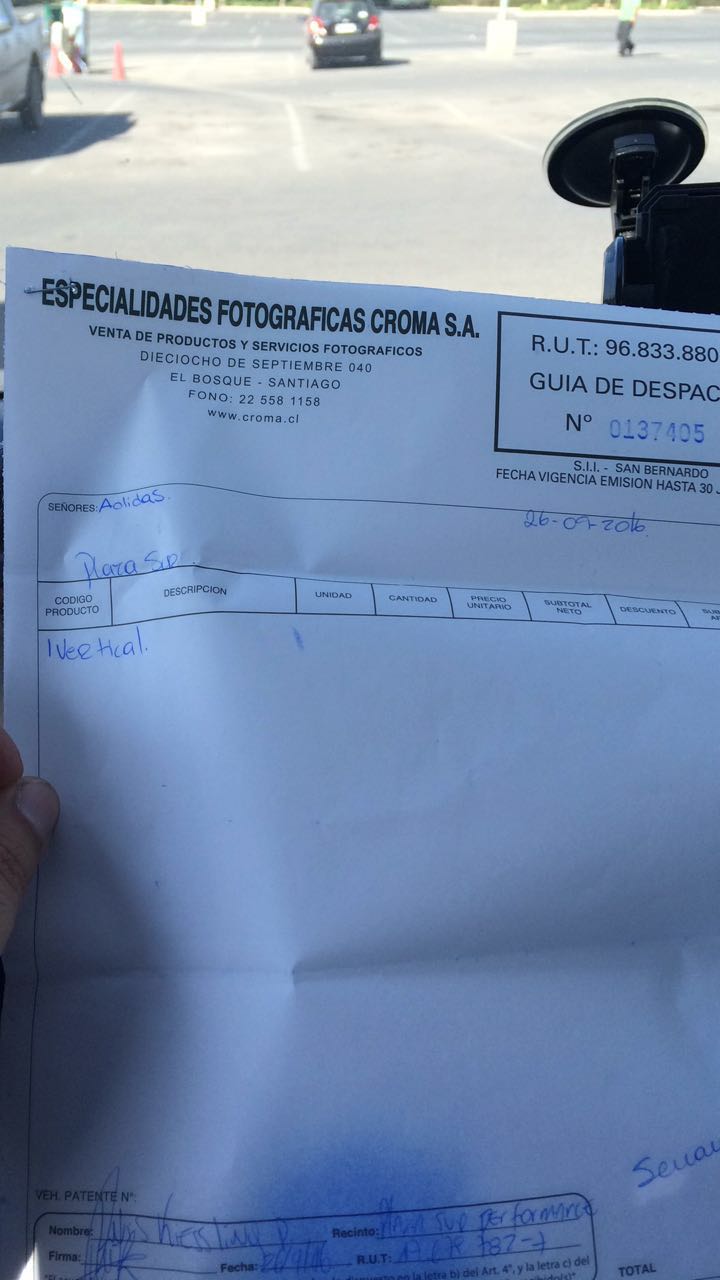 ESPECIALIDADES FOTOGRAFICAS CROMA S.A.
VENTA DE PRODUCTOS Y SERVICIOS FOTOGRAFICOS
DIECIOCHO DE SEPTIEMBRE 040
EL BOSQUE - SANTIAGO
FONO: 22 558 1158
www.croma.cl
R.U.T.: 96.833.880
GUIA DE DESPAC
Nº 0137405
S.I.I. - SAN BERNARDO
FECHA VIGENCIA EMISION HASTA 30
SEÑORES: Adidas.
26-09-2016.
Plaza Sur
CODIGO PRODUCTO DESCRIPCION UNIDAD CANTIDAD PRECIO UNITARIO SUBTOTAL NETO DESCUENTO
1 Vertical.
VEH. PATENTE Nº:
Nombre: Recinto: Plaza Sur performance
Firma: Fecha: 26/9/16 R.U.T:
dispuesto en la letra b) del Art. 4º, y la letra c) del
TOTAL